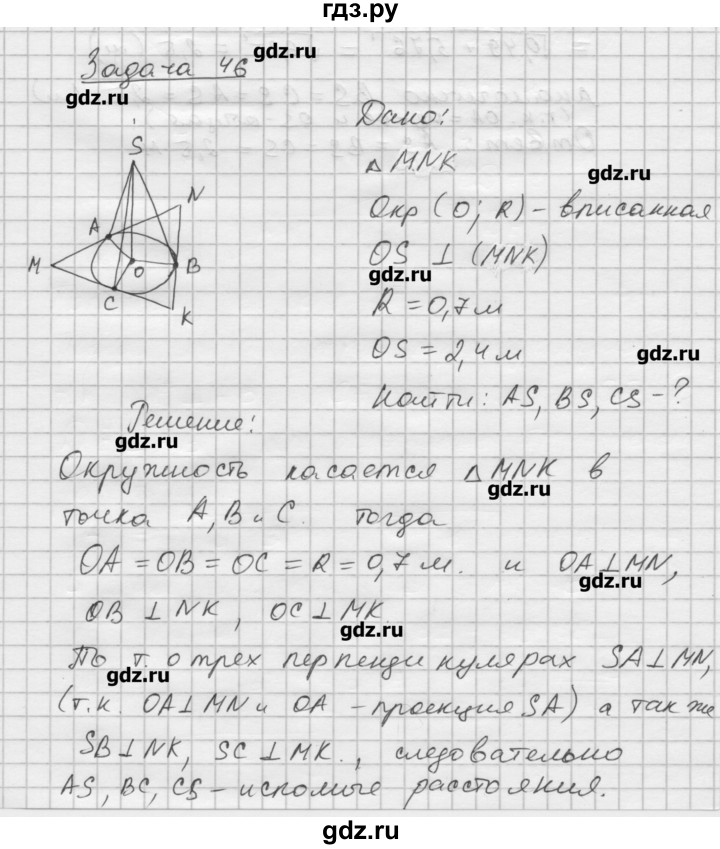 гдз.ру
Задача 46
gdz.ru
gdz.ru
Дано:
△MNK
gdz.ru
Окр (O; R) – вписанная
OS ⊥ (MNK)
gdz.ru
R = 0,7 м
OS = 2,4 м
gdz.ru
Найти: AS, BS, CS – ?
S
N
A
M
O
B
C
K
Решение:
gdz.ru
Окружность касается △MNK в
gdz.ru
точка A, B и C. тогда
OA = OB = OC = R = 0,7 м. и OA⊥MN,
gdz.ru
OB ⊥ NK, OC⊥MK.
gdz.ru
По т. о трех перпендикулярах SA⊥MN,
gdz.ru
(т.к. OA⊥MN и OA – проекция SA) а так же
SB⊥NK, SC⊥MK., следовательно
AS, BC, CS – искомые расстояния.
gdz.ru
gdz.ru